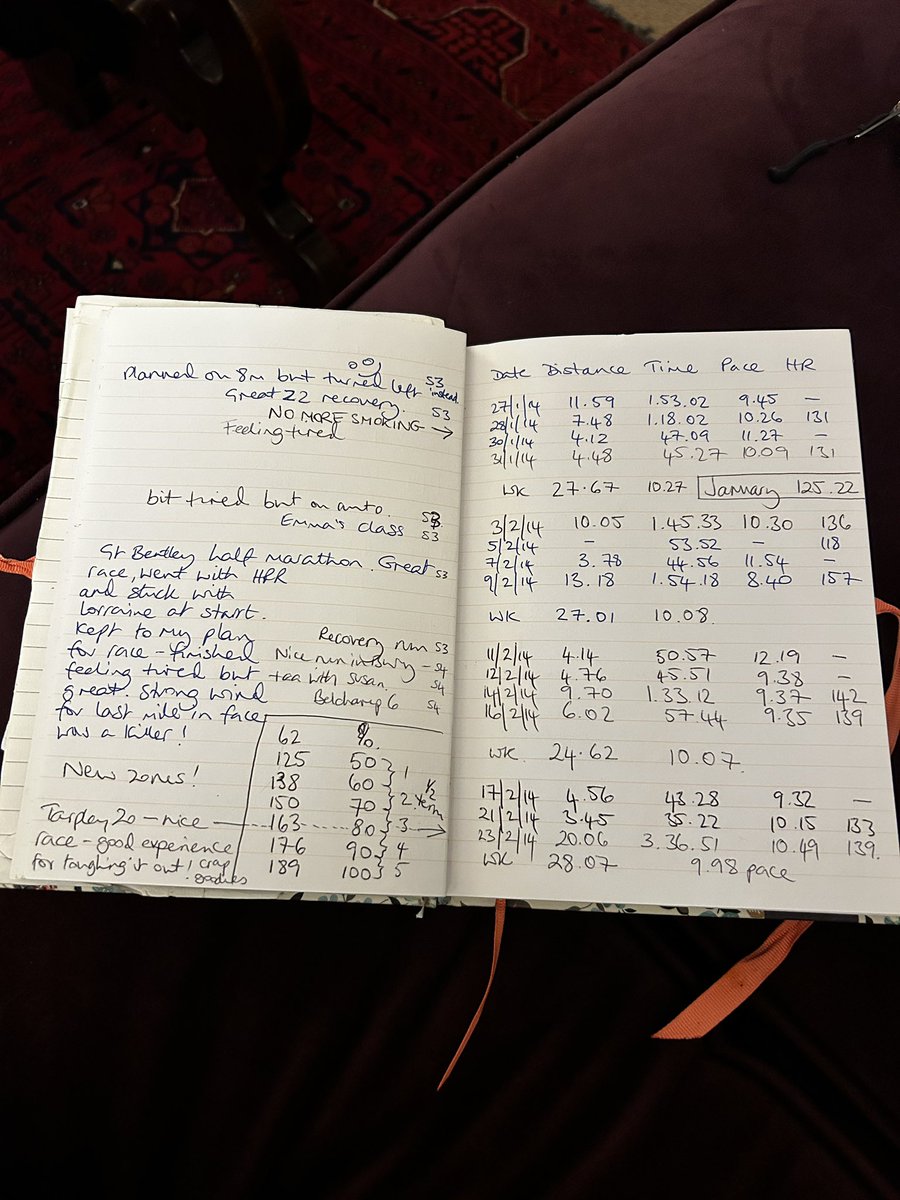 Planned on 8m but turned left instead 53
Great Z2 recovery. 53
NO MORE SMOKING →
Feeling tired
bit tired but on auto. 53
Emma's class 53
Gt Bentley half marathon. Great 53
race, went with HPR
and stuck with
Lorraine at start.
Kept to my plan
for race - finished
feeling tired but
great. Strong wind
for last mile in face
was a killer!
Recovery run 53
Nice run in Bury - 54
tea with Susan. 54
Belchamp 6 54
New zones!
62 %
125 50
138 60
150 70
163 80
176 90
189 100
1
2
3
4
5
Tarpley 20 - nice
race - good experience
for toughing it out! crap
goodies
Date Distance Time Pace HR
27/1/14 11.59 1.53.02 9.45 -
28/1/14 7.48 1.18.02 10.26 131
30/1/14 4.12 47.09 11.27 -
31/1/14 4.48 45.27 10.09 131
WK 27.67 10.27 January 125.22
3/2/14 10.05 1.45.33 10.30 136
5/2/14 - 53.52 - 118
7/2/14 3.78 44.56 11.54 -
9/2/14 13.18 1.54.18 8.40 157
WK 27.01 10.08.
11/2/14 4.14 50.57 12.19 -
12/2/14 4.76 45.51 9.38 -
14/2/14 9.70 1.33.12 9.37 142
16/2/14 6.02 57.44 9.35 139
WK. 24.62 10.07.
17/2/14 4.56 43.28 9.32 -
21/2/14 3.45 35.22 10.15 133
23/2/14 20.06 3.36.51 10.49 139.
WK 28.07 9.98 pace